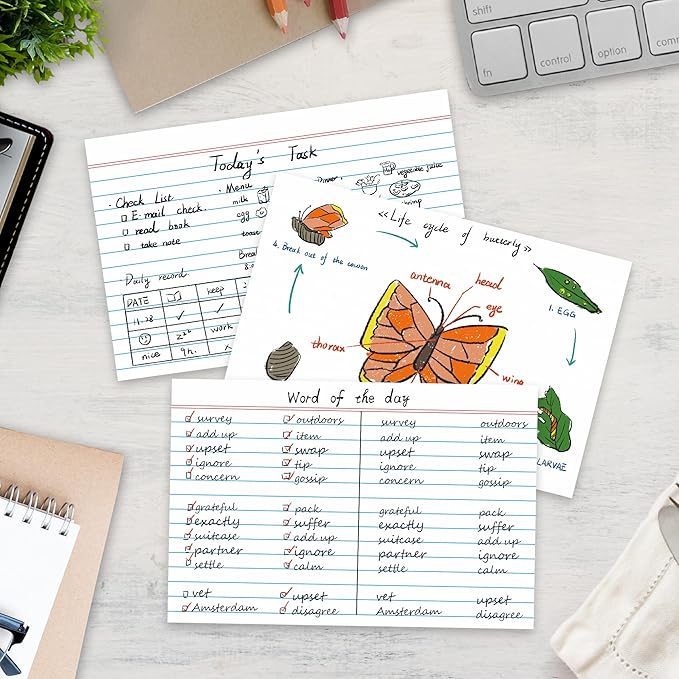 shift
fn
control
option
command
Today's Task
· Check List
E-mail check.
read book
take note
· Menu
milk
egg
toase
vegetable juice
Daily record
DATE
keep
11.28
work
nice
9h.
《Life cycle of butterly》
4. Break out of the cowon
antenna
head
eye
thorax
wing
1. EGG
LARVAE
Word of the day
survey outdoors survey outdoors
add up item add up item
upset swap upset swap
ignore tip ignore tip
concern gossip concern gossip
grateful pack grateful pack
exactly suffer exactly suffer
suitcase add up suitcase add up
partner ignore partner ignore
settle calm settle calm
vet upset vet upset
Amsterdam disagree Amsterdam disagree